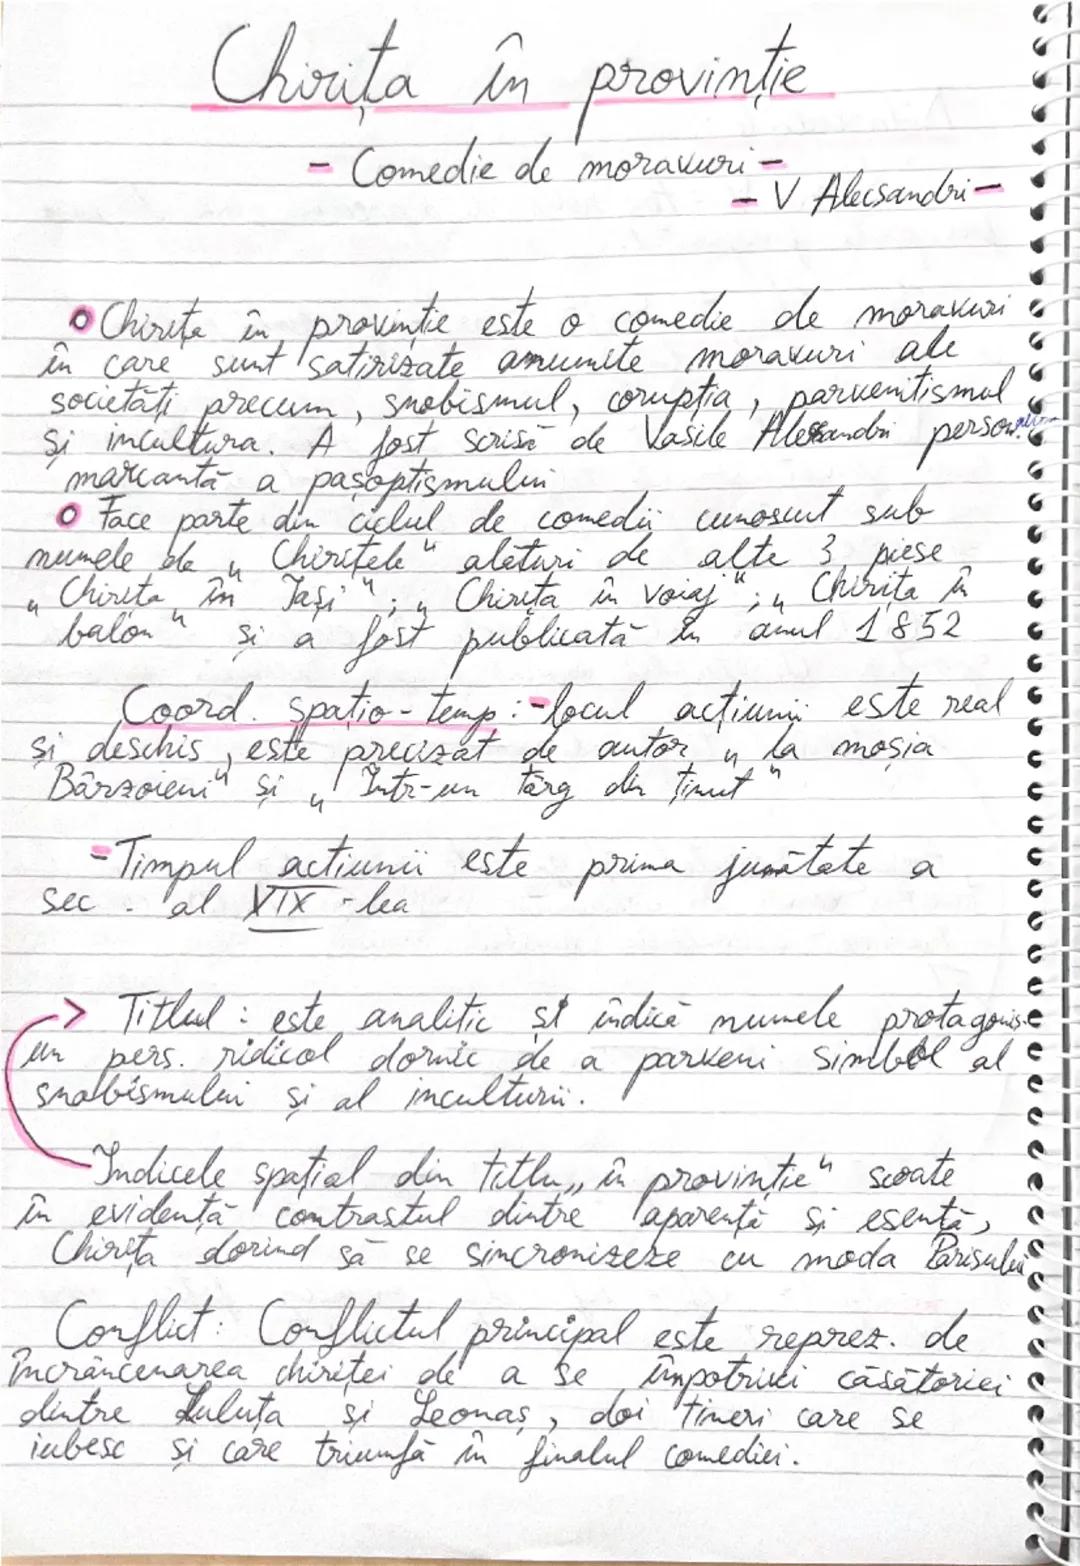 Chirița în provinție
- Comedie de moravuri -
- V Alecsandri -
Chirița în provinție este o comedie de moravuri
în care sunt satirizate anumite moravuri ale
societăți precum, snobismul, corupția, parvenitismul
și incultura. A fost scrisă de Vasile Alecsandri person.
marcantă a pașoptismului
Face parte din ciclul de comedii cunoscut sub
numele de „Chirițele" alături de alte 3 piese
„Chirița în Iași"; „Chirița în voiaj"; „Chirița în
balon" și a fost publicată în anul 1852
Coord. spațio-temp: - locul acțiunii este real
și deschis, este precizat de autor „la moșia
Bârzoieni" și „Într-un târg din ținut"
- Timpul acțiunii este prima jumătate a
sec. al XIX-lea
Titlul: este analitic și indică numele protagonis.
un pers. ridicol dornic de a parveni simbol al
snobismului și al inculturii.
Indicele spațial din titlu „în provinție" scoate
în evidență contrastul dintre aparență și esență,
Chirița dorind să se sincronizeze cu moda Parisului
Conflict: Conflictul principal este reprez. de
încrâncenarea chiriței de a se împotrivi căsătoriei
dintre Luluța și Leonaș, doi tineri care se
iubesc și care triumfă în finalul comediei.